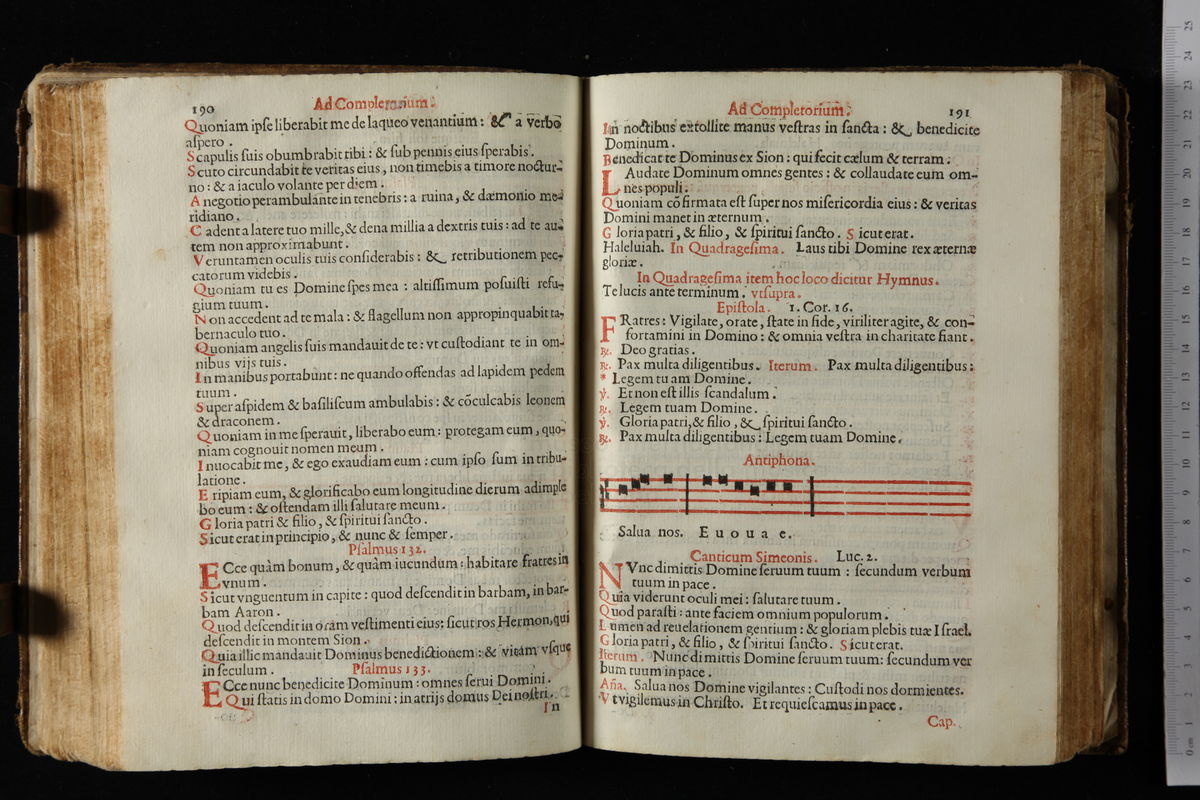 190
Ad Completorium.
Quoniam ipſe liberabit me de laqueo venantium: & a verbo
aſpero.
Scapulis ſuis obumbrabit tibi: & ſub pennis eius ſperabis.
Scuto circundabit te veritas eius, non timebis a timore noctur-
no: & a iaculo volante per diem.
A negotio perambulante in tenebris: a ruina, & dæmonio me-
ridiano.
Cadent a latere tuo mille, & dena millia a dextris tuis: ad te au-
tem non approximabunt.
Veruntamen oculis tuis conſiderabis: & retributionem pec-
catorum videbis.
Quoniam tu es Domine ſpes mea: altiſſimum poſuiſti refu-
gium tuum.
Non accedent ad te mala: & flagellum non appropinquabit ta-
bernaculo tuo.
Quoniam angelis ſuis mandauit de te: vt cuſtodiant te in om-
nibus vijs tuis.
In manibus portabunt: ne quando offendas ad lapidem pedem
tuum.
Super aſpidem & baſiliſcum ambulabis: & cõculcabis leonem
& draconem.
Quoniam in me ſperauit, liberabo eum: protegam eum, quo-
niam cognouit nomen meum.
Inuocabit me, & ego exaudiam eum: cum ipſo ſum in tribu-
latione.
Eripiam eum, & glorificabo eum longitudine dierum adimple
bo eum: & oſtendam illi ſalutare meum.
Gloria patri & filio, & ſpiritui ſancto.
Sicut erat in principio, & nunc & ſemper.
Pſalmus 132.
ECce quàm bonum, & quàm iucundum: habitare fratres in
vnum.
Sicut vnguentum in capite: quod deſcendit in barbam, in bar-
bam Aaron.
Quod deſcendit in oram veſtimenti eius: ſicut ros Hermon, qui
deſcendit in montem Sion.
Quia illic mandauit Dominus benedictionem: & vitam vſque
in ſeculum. Pſalmus 133.
ECce nunc benedicite Dominum: omnes ſerui Domini.
Qui ſtatis in domo Domini: in atrijs domus Dei noſtri.
In
Ad Completorium.
191
In noctibus extollite manus veſtras in ſancta: & benedicite
Dominum.
Benedicat te Dominus ex Sion: qui fecit cælum & terram.
LAudate Dominum omnes gentes: & collaudate eum om-
nes populi.
Quoniam cõfirmata eſt ſuper nos miſericordia eius: & veritas
Domini manet in æternum.
Gloria patri, & filio, & ſpiritui ſancto. Sicut erat.
Haleluiah. In Quadrageſima. Laus tibi Domine rex æternæ
gloriæ.
In Quadrageſima item hoc loco dicitur Hymnus.
Te lucis ante terminum. vtſupra.
Epiſtola. 1. Cor. 16.
FRatres: Vigilate, orate, ſtate in fide, viriliter agite, & con-
fortamini in Domino: & omnia veſtra in charitate fiant.
℞. Deo gratias.
℞. Pax multa diligentibus. Iterum. Pax multa diligentibus:
* Legem tuam Domine.
℣. Et non eſt illis ſcandalum.
℞. Legem tuam Domine.
℣. Gloria patri, & filio, & ſpiritui ſancto.
℞. Pax multa diligentibus: Legem tuam Domine.
Antiphona.
Salua nos. E u o u a e.
Canticum Simeonis. Luc. 2.
NVnc dimittis Domine ſeruum tuum: ſecundum verbum
tuum in pace.
Quia viderunt oculi mei: ſalutare tuum.
Quod paraſti: ante faciem omnium populorum.
Lumen ad reuelationem gentium: & gloriam plebis tuæ Iſrael.
Gloria patri, & filio, & ſpiritui ſancto. Sicut erat.
Iterum. Nunc dimittis Domine ſeruum tuum: ſecundum ver
bum tuum in pace.
Aña. Salua nos Domine vigilantes: Cuſtodi nos dormientes.
Vt vigilemus in Chriſto. Et requieſcamus in pace.
Cap.